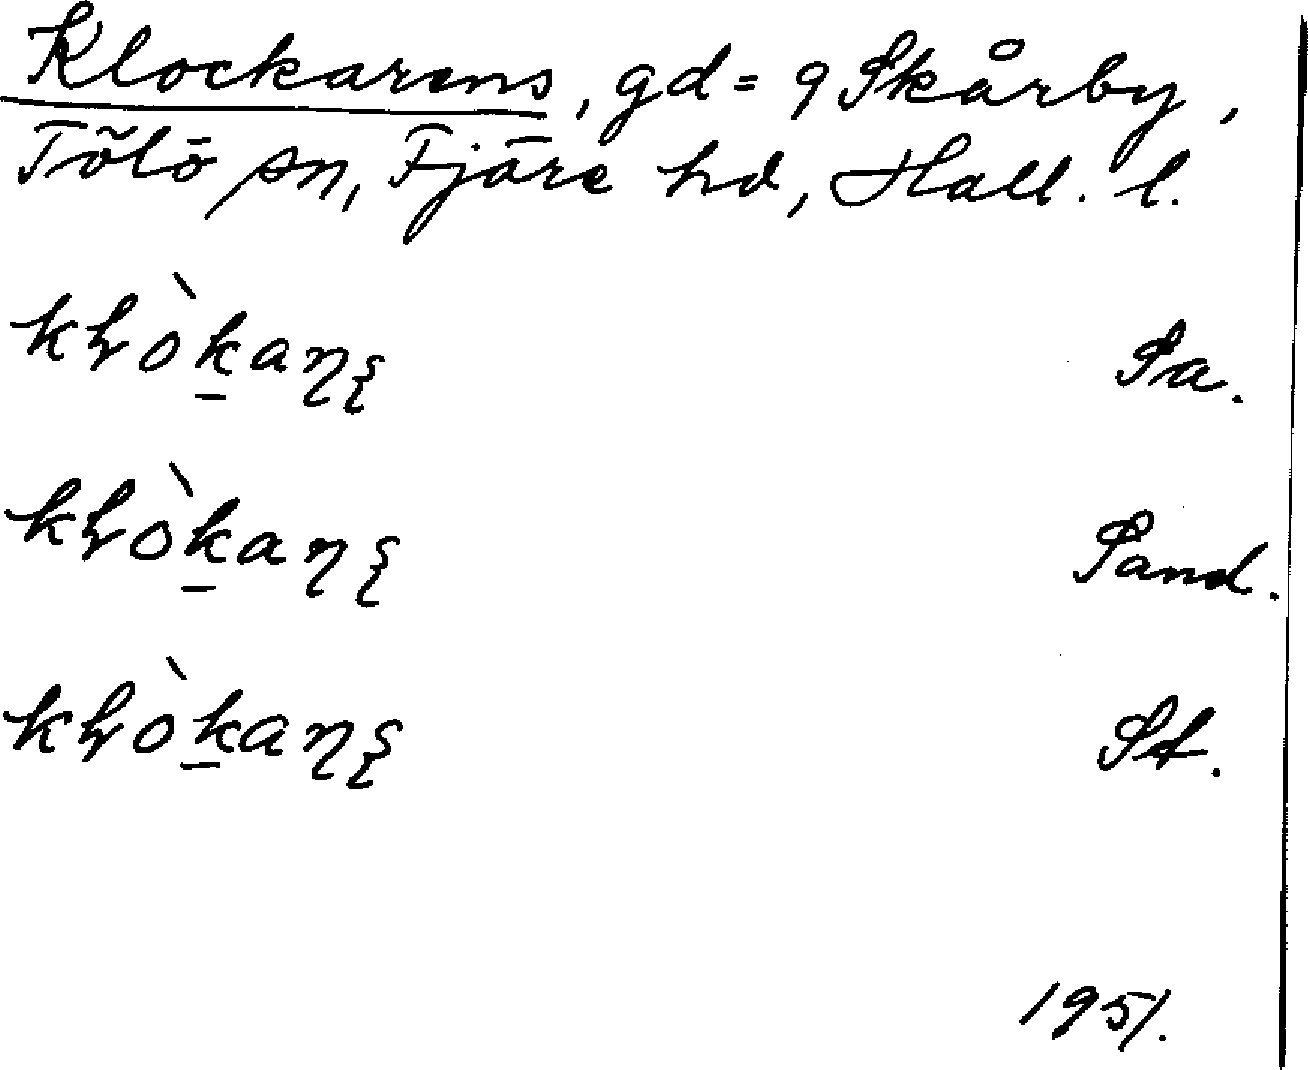 Klockarens, gd = 9 Skårby,
Tölö sn, Fjäre hd, Hall. l.
Sa.
Sand.
St.
1951.